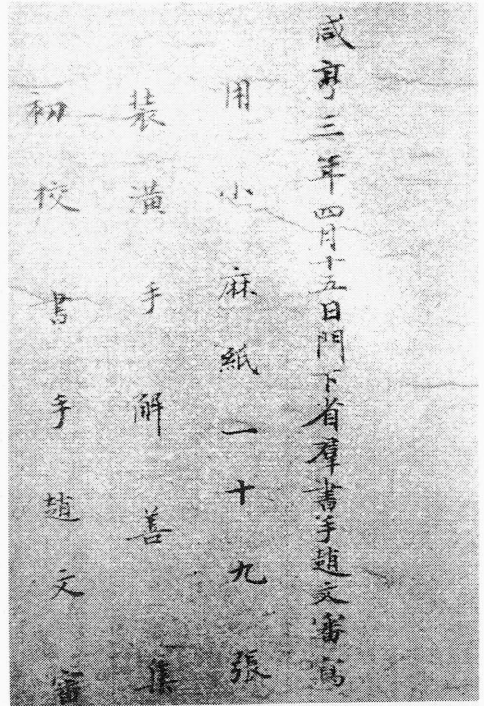 咸亨三年四月十五日門下省羣書手趙文審寫
用小麻紙一十九張
裝潢手解善集
初校書手趙文審